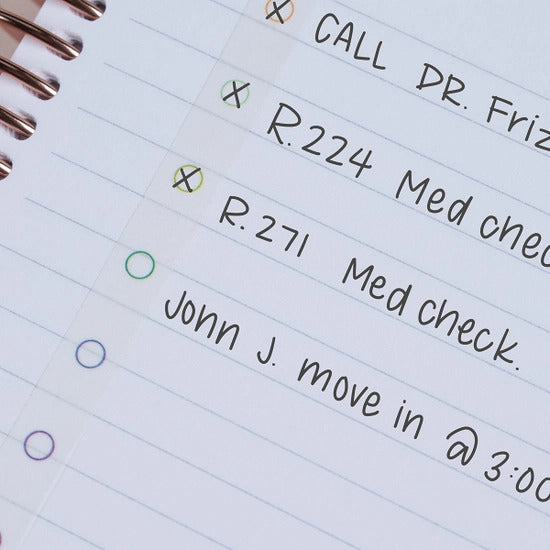 CALL DR. Friz
R.224 Med chec
R.271 Med check.
John J. move in @ 3:00